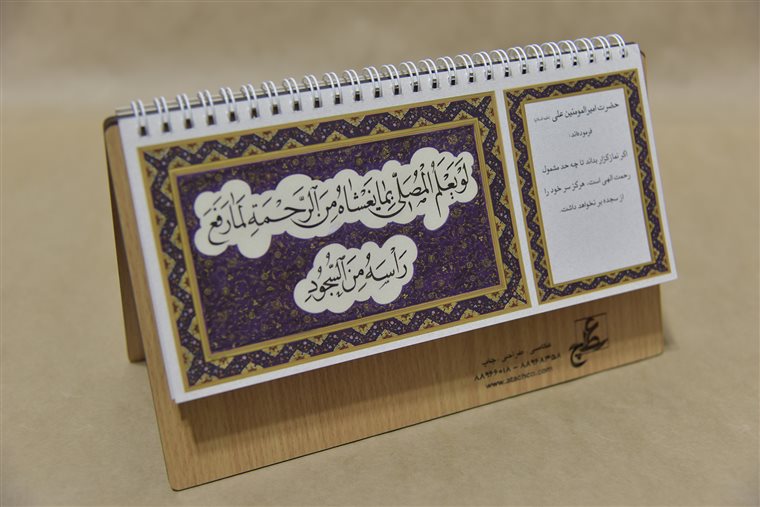 لَوْ یَعْلَمُ الْمُصَلِّی بِمَا یَغْشَاهُ مِنَ الرَّحْمَةِ لَمَا رَفَعَ
رَأْسَهُ مِنَ السُّجُودِ
حضرت امیرالمومنین علی (علیه السلام)
فرموده‌اند:
اگر نمازگزار بداند تا چه حد مشمول
رحمت الهی است، هرگز سر خود را
از سجده بر نخواهد داشت.
عکاسی . طراحی . چاپ
۸۸۹۶۶۰۱۸ - ۸۸۹۶۸۳۵۸
www.atachco.com